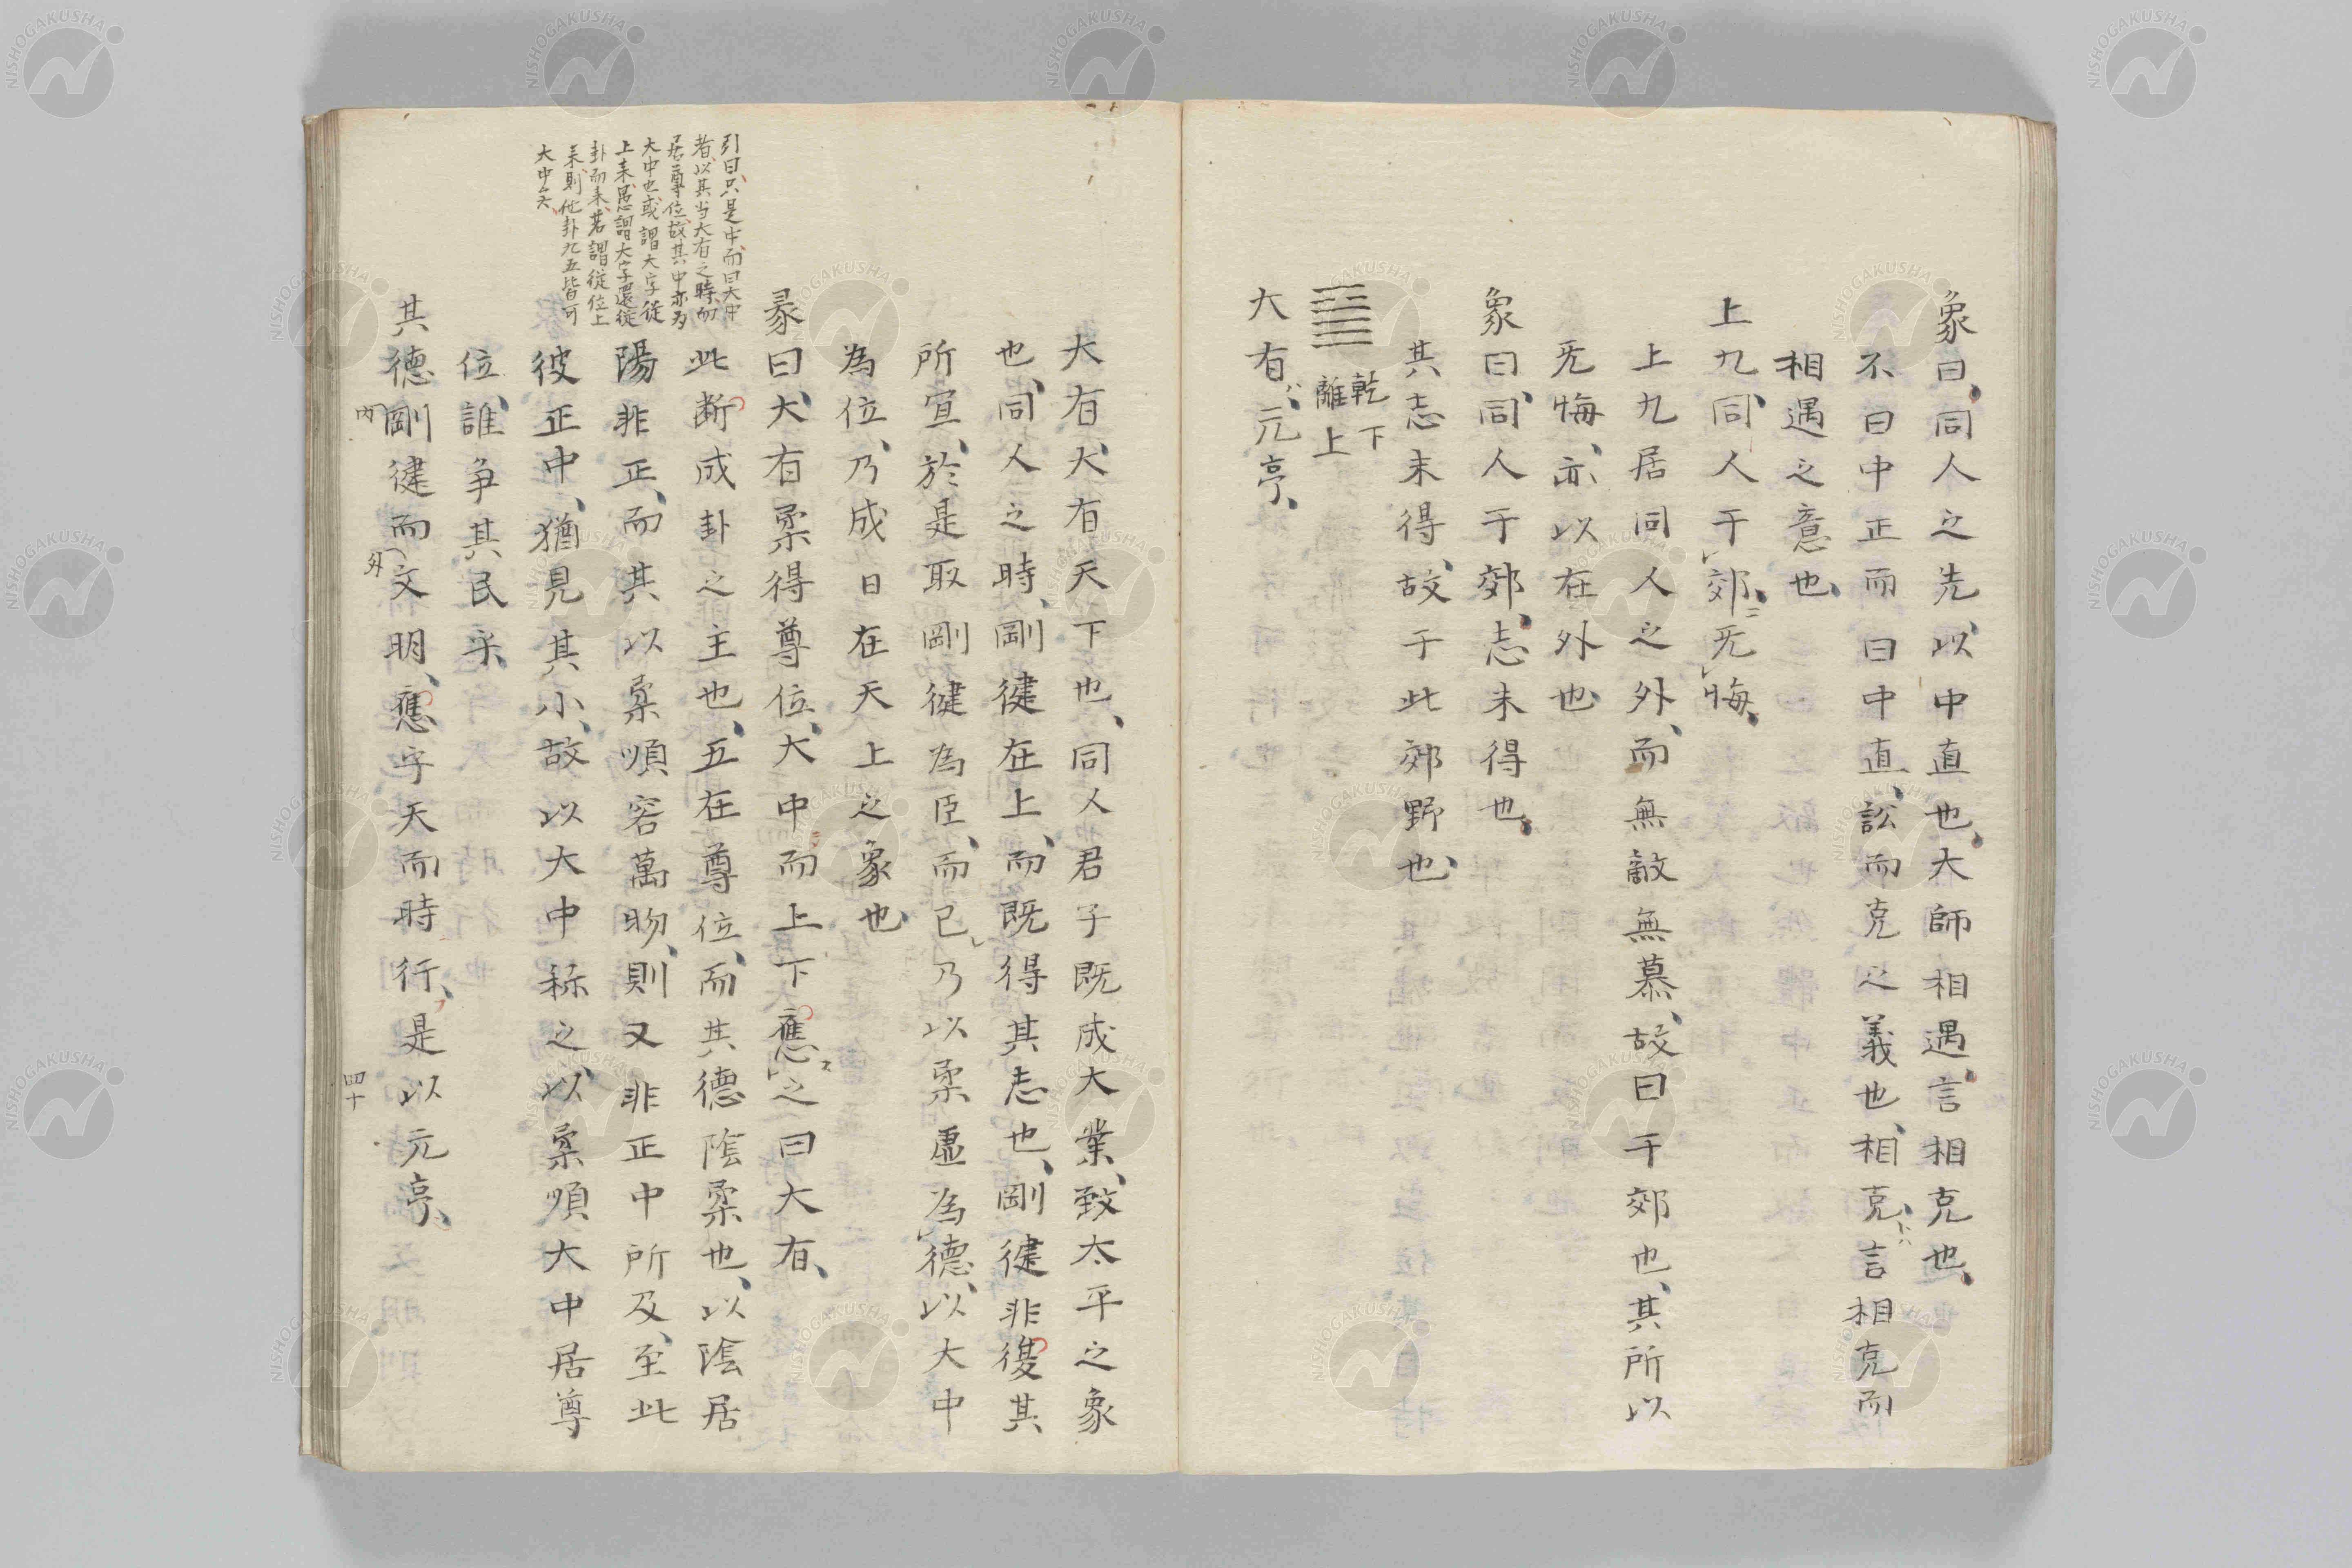 象曰、同人之先、以中直也、大師相遇、言相克也、
不曰中正而曰中直、訟而克之義也、相克、言相克而
相遇之意也、
上九、同人于郊、无悔、
上九居同人之外、而無敵無慕、故曰于郊也、其所以
无悔、亦以在外也、
象曰、同人于郊、志未得也、
其志未得、故于此郊野也、
乾下
離上
大有、元亨、
大有、大有天下也、同人君子既成大業、致太平之象
也、同人之時、剛健在上、而既得其志也、剛健非復其
所宜、於是取剛健為臣、而已乃以柔虛為德、以大中
為位、乃成日在天上之象也、
彖曰、大有柔得尊位、大中而上下應之曰大有、
此断成卦之主也、五在尊位、而其德陰柔也、以陰居
陽非正、而其以柔順容萬物、則又非正中所及、至此
彼正中、猶見其小、故以大中称之、以柔順大中居尊
位、誰争其民乎、
其德剛健而文明、應乎天而時行、是以元亨、
内
外
引曰、只是中、而曰大中
者、以其当大有之時、而
居尊位、故其中亦為
大中也、或謂大字従
上来、愚謂大字還従
卦而来、若謂従位上
来、則他卦九五皆可
大中矣、
四十
NISHOGAKUSHA